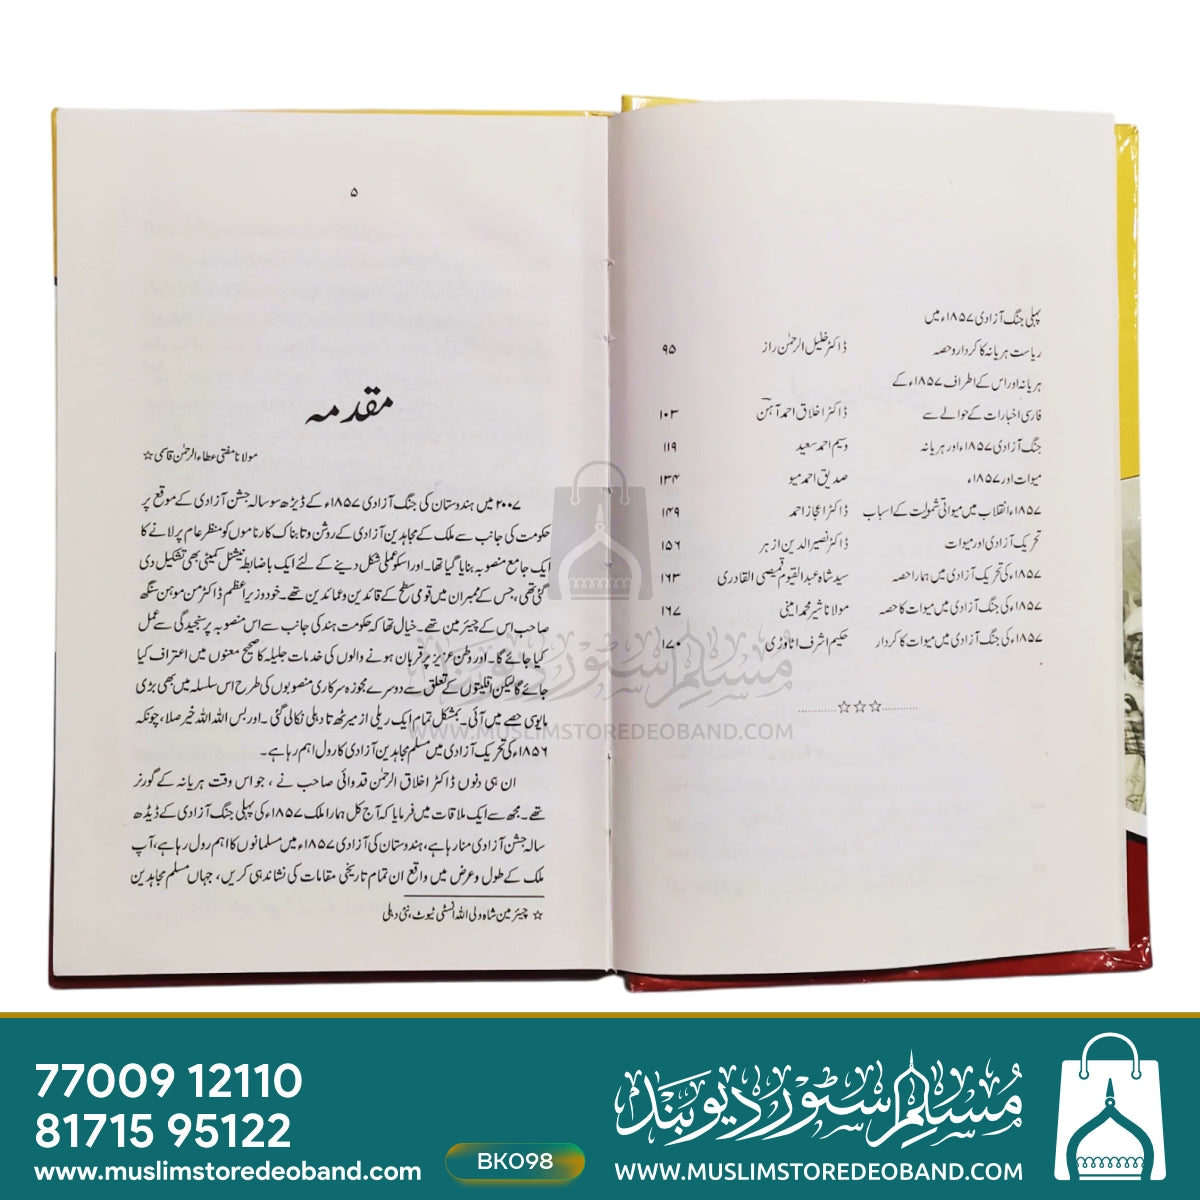 پہلی جنگ آزادی ۱۸۵۷ء میں
ریاست ہریانہ کا کردار وحصہ ڈاکٹر خلیل الرحمٰن راز ۹۵
ہریانہ اور اس کے اطراف ۱۸۵۷ء کے
فارسی اخبارات کے حوالے سے ڈاکٹر اخلاق احمد آہن ۱۰۳
جنگ آزادی ۱۸۵۷ء اور ہریانہ وسیم احمد سعید ۱۱۹
میوات اور ۱۸۵۷ء صدیق احمد میو ۱۳۴
۱۸۵۷ء انقلاب میں میواتی شمولیت کے اسباب ڈاکٹر اعجاز احمد ۱۴۹
تحریک آزادی اور میوات ڈاکٹر نصیر الدین ازہر ۱۵۶
۱۸۵۷ء کی تحریک آزادی میں ہمارا حصہ سید شاہ عبدالقیوم قمیصی القادری ۱۶۳
۱۸۵۷ء کی جنگ آزادی میں میوات کا حصہ مولانا شیر محمد امینی ۱۶۷
۱۸۵۷ء کی جنگ آزادی میں میوات کا کردار حکیم اشرف اناوڑی ۱۷۰
☆☆☆
۵
مقدمہ
مولانا مفتی عطاء الرحمٰن قاسمی ☆
۲۰۰۷ میں ہندوستان کی جنگ آزادی ۱۸۵۷ء کے ڈیڑھ سو سالہ جشن آزادی کے موقع پر
حکومت کی جانب سے ملک کے مجاہدین آزادی کے روشن و تابناک کارناموں کو منظر عام پر لانے کا
ایک جامع منصوبہ بنایا گیا تھا۔ اور اسکو عملی شکل دینے کے لئے ایک باضابطہ نیشنل کمیٹی بھی تشکیل دی
گئی تھی، جس کے ممبران میں قومی سطح کے قائدین و عمائدین تھے۔ خود وزیر اعظم ڈاکٹر من موہن سنگھ
صاحب اس کے چیئر مین تھے۔ خیال تھا کہ حکومت ہند کی جانب سے اس منصوبہ پر سنجیدگی سے عمل
کیا جائے گا۔ اور وطن عزیز پر قربان ہونے والوں کی خدمات جلیلہ کا صحیح معنوں میں اعتراف کیا
جائے گا لیکن اقلیتوں کے تعلق سے دوسرے مجوزہ سرکاری منصوبوں کی طرح اس سلسلہ میں بھی بڑی
مایوسی حصے میں آئی۔ بمشکل تمام ایک ریلی از میرٹھ تا دہلی نکالی گئی۔ اور بس اللہ اللہ خیر صلا، چونکہ
۱۸۵۶ء کی تحریک آزادی میں مسلم مجاہدین آزادی کا رول اہم رہا ہے۔
ان ہی دنوں ڈاکٹر اخلاق الرحمٰن قدوائی صاحب نے، جو اس وقت ہریانہ کے گورنر
تھے۔ مجھ سے ایک ملاقات میں فرمایا کہ آج کل ہمارا ملک ۱۸۵۷ء کی پہلی جنگ آزادی کے ڈیڈھ
سالہ جشن آزادی منا رہا ہے، ہندوستان کی آزادی ۱۸۵۷ء میں مسلمانوں کا اہم رول رہا ہے، آپ
ملک کے طول و عرض میں واقع ان تمام تاریخی مقامات کی نشاندہی کریں، جہاں مسلم مجاہدین
☆ چیئر مین شاہ ولی اللہ انسٹی ٹیوٹ، نئی دہلی
مسلم سٹور دیوبند
WWW.MUSLIMSTOREDEOBAND.COM
77009 12110
81715 95122
www.muslimstoredeoband.com
BK098
مسلم سٹور دیوبند
WWW.MUSLIMSTOREDEOBAND.COM